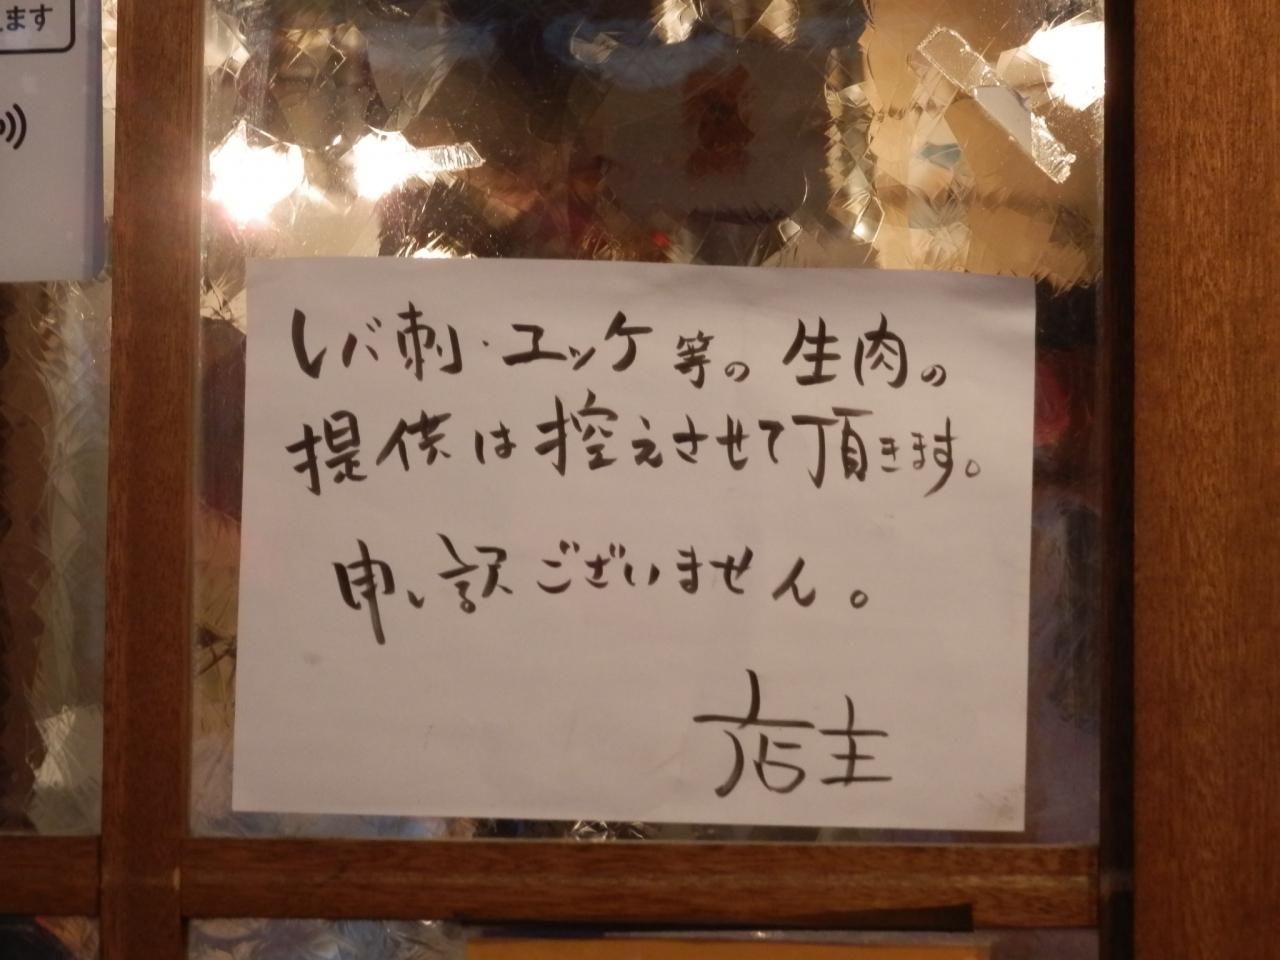 えます
レバ刺・ユッケ等の生肉の
提供は控えさせて頂きます。
申し訳ございません。
店主